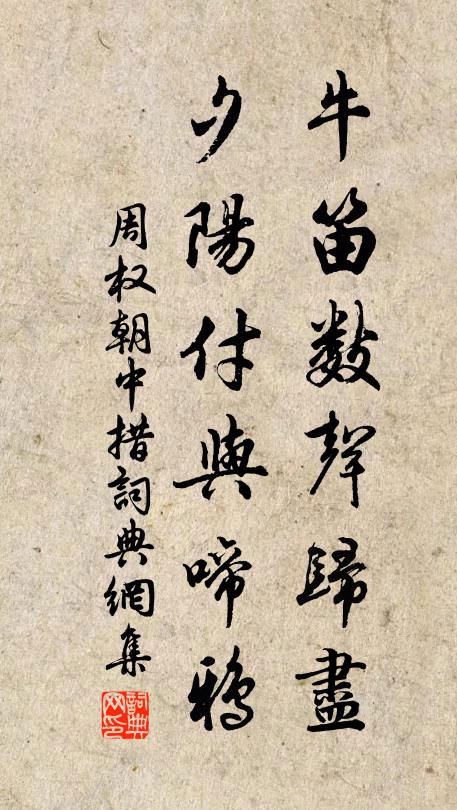 牛笛数聲歸盡
夕陽付與啼鴉
周权朝中措詞典網集
詞典网印